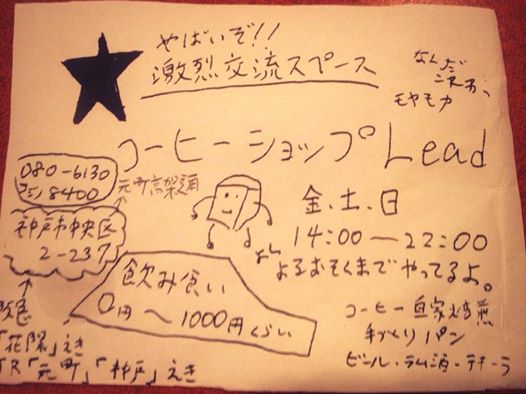 やばいぞ!!
激烈交流スペース
なんだ
これぁっ
モヤモカ
コーヒーショップLead
080-6130
8400
元町高架通
神戸市中央区
2-237
金、土、日
14:00—22:00
よるおそくまでやってるよ。
飲み食い
0円〜1000円くらい
阪急
「花隈」えき
JR「元町」「神戸」えき
コーヒー自家焙煎
手づくりパン
ビール・ラム酒・テキーラ